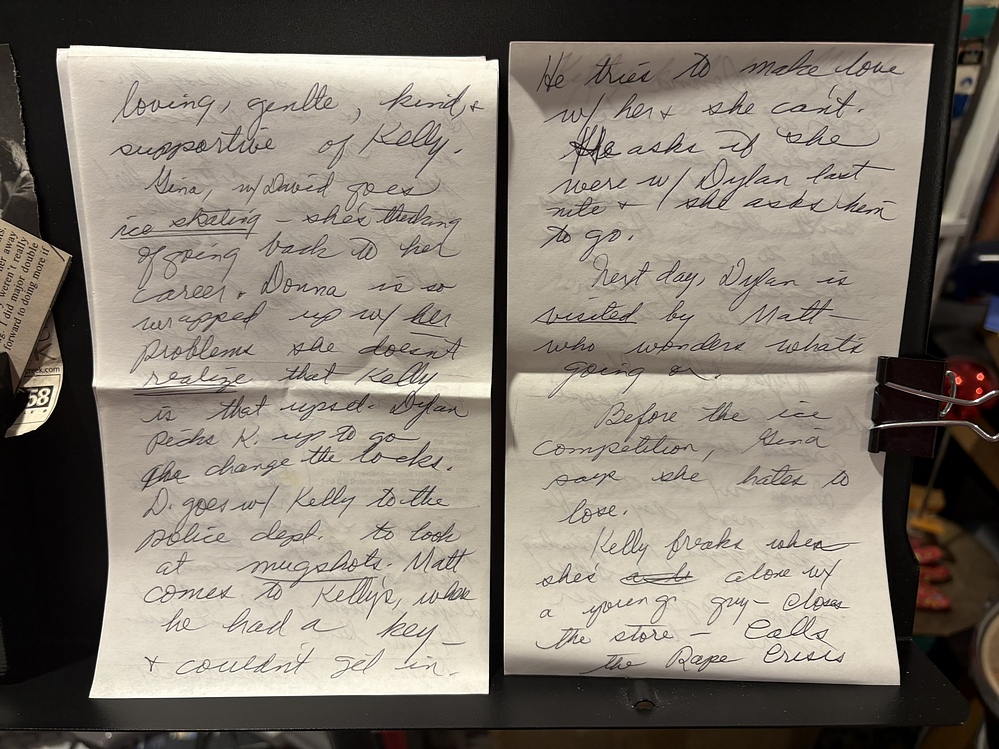 loving, gentle, kind, +
supportive of Kelly.
Gina, w/David goes
ice skating - she's thinking
of going back to her
career. Donna is so
wrapped up w/ her
problems she doesn't
realize that Kelly
is that upset. Dylan
picks K. up to go
change the locks.
D. goes w/ Kelly to the
police dept. to look
at mugshots. Matt
comes to Kelly's, where
he had a key -
+ couldn't get in.
He tries to make love
w/ her + she can't.
He asks if she
were w/ Dylan last
nite + she asks him
to go.
Next day, Dylan is
visited by Matt -
who wonders what's
going on.
Before the ice
competition, Gina
says she hates to
lose.
Kelly freaks when
she's alone w/
a young guy - closes
the store - Calls
the Rape Crisis
her away
weren't really
g. I did major double
forward to doing more if
eck.com
58